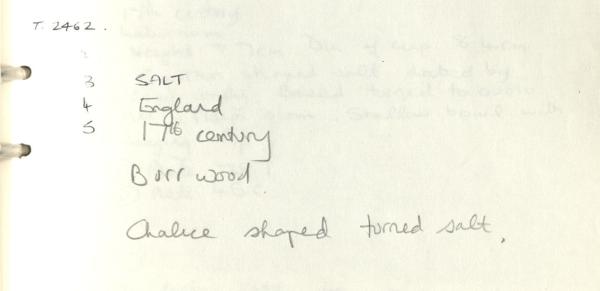 T. 2462.
3 SALT
4 England
5 17th century
Burr wood
Chalice shaped turned salt.